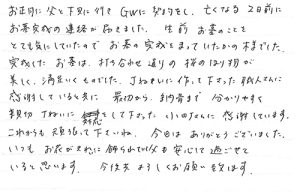 お正月に父と下見に行き GWに契約をし、亡くなる2日前に
お墓完成の連絡が届きました。 生前 お墓のことを
とても気にしていたので お墓の完成をまっていたかの様でした。
完成したお墓は、打ち合せ通りの桜のほり物が
美しく、満足いくものでした。ていねいに作って下さった職人さんに
感謝していると共に 最初から 納骨まで 分かりやすく
親切ていねいに 対応をして下さった 小田さんに 感謝しています。
これからも 頑張って下さいね。 今回は ありがとうございました。
いつも お花がきれいに飾られていて父も安心して過ごせて
いると思います。 今後共よろしくお願い致します。